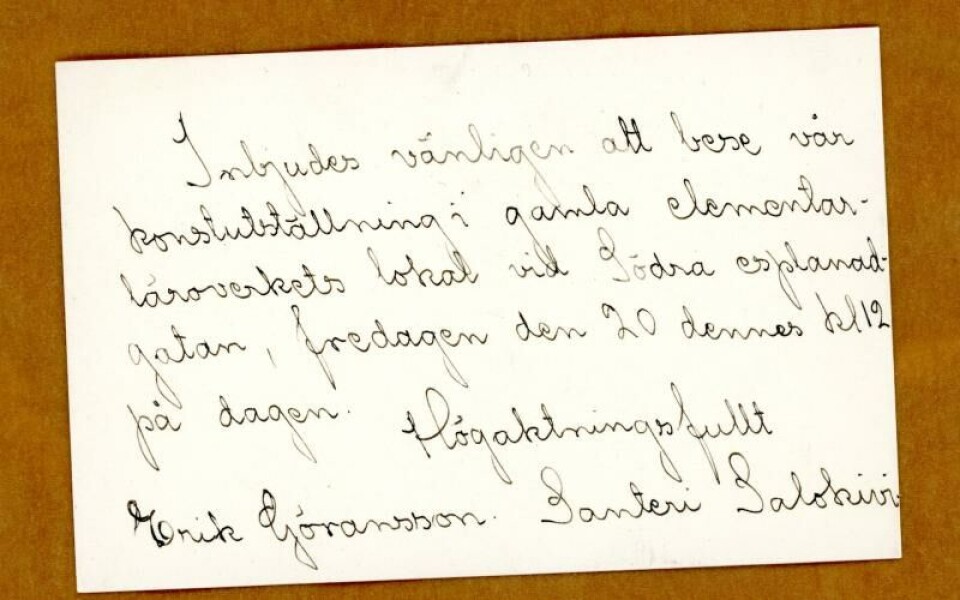 Inbjudes vänligen att bese vår
konstutställning i gamla elementar-
läroverkets lokal vid Södra esplanad-
gatan, fredagen den 20 dennes kl 12
på dagen.
Högaktningsfullt
Erik Göransson. Santeri Salokivi